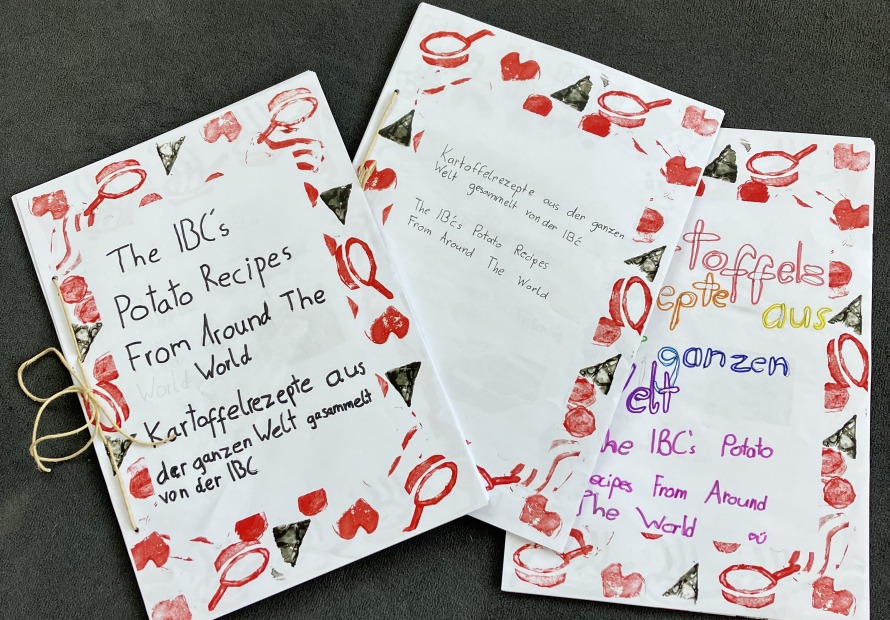 The IBC's
Potato Recipes
From Around The
World
Kartoffelrezepte aus
der ganzen Welt gasammelt
von der IBC
Kartoffelrezepte aus der ganzen
Welt gesammelt von der IBC
The IBC's Potato Recipes
From Around The World
toffelz
epte aus
ganzen
elt
he IBC's Potato
ecipes From Around
The World